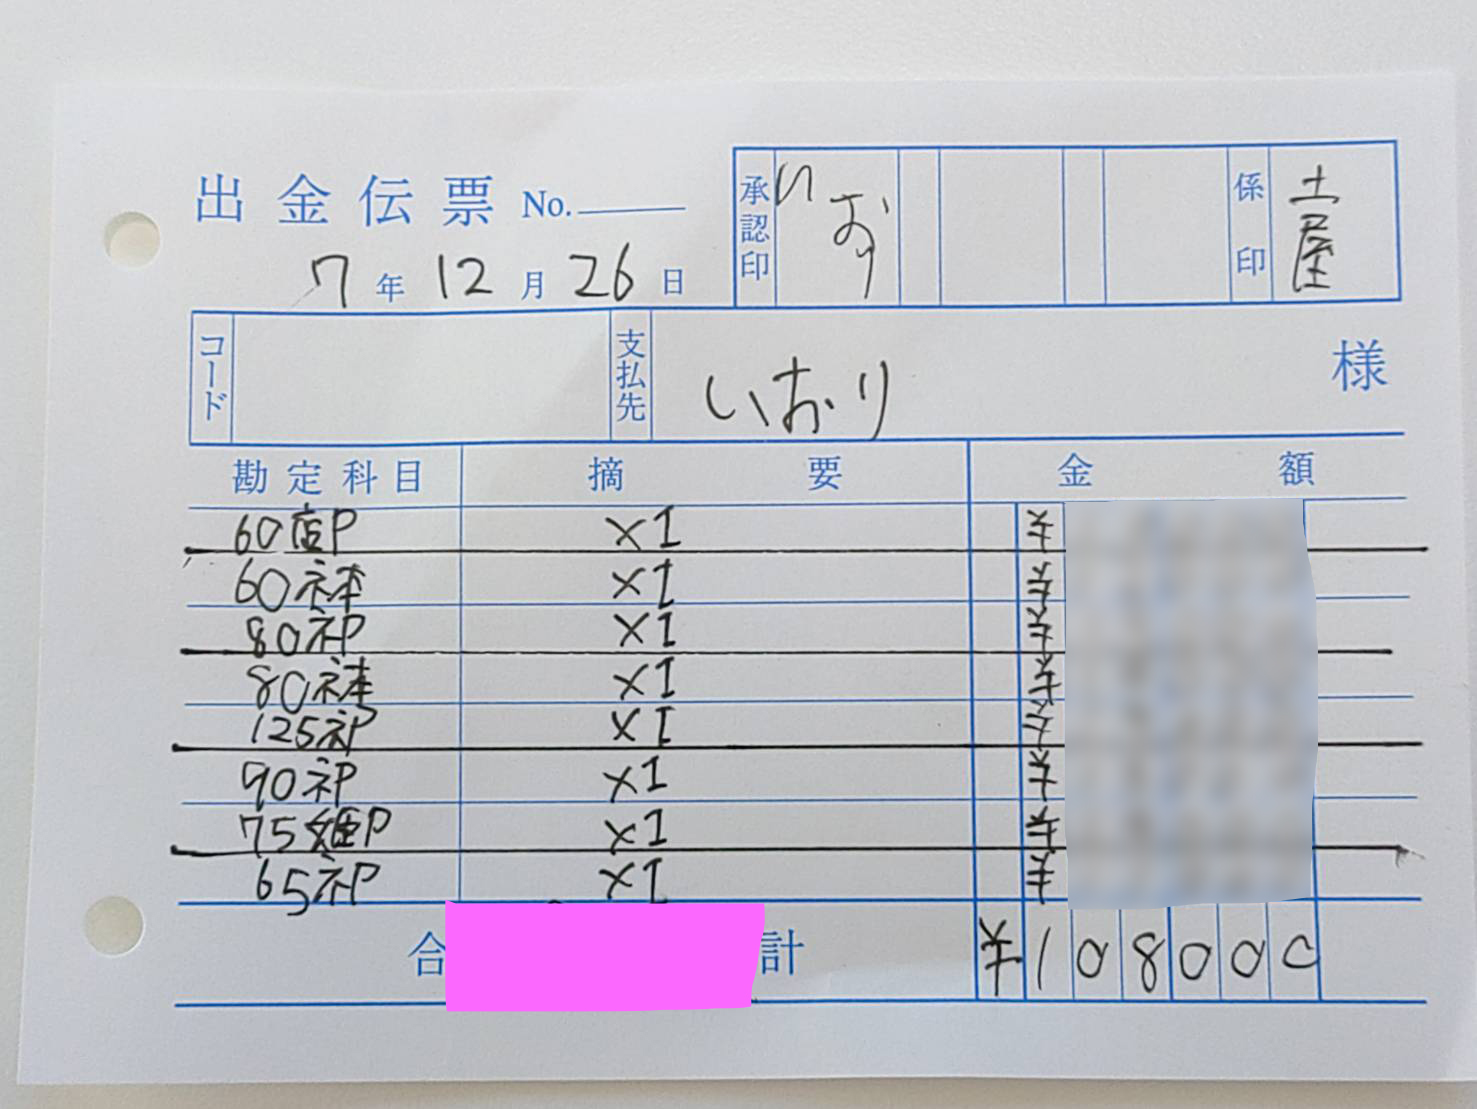 出金伝票 No.
7年12月26日
承認印 いおり
係印 土屋
コード
支払先 いおり 様
勘定科目 摘要 金額
60店P ×1 ¥
60ネ本 ×1 ¥
80ネP ×1 ¥
80ネ本 ×1 ¥
125ネP ×1 ¥
90ネP ×1 ¥
75姫P ×1 ¥
65ネP ×1 ¥
合計 ¥108000